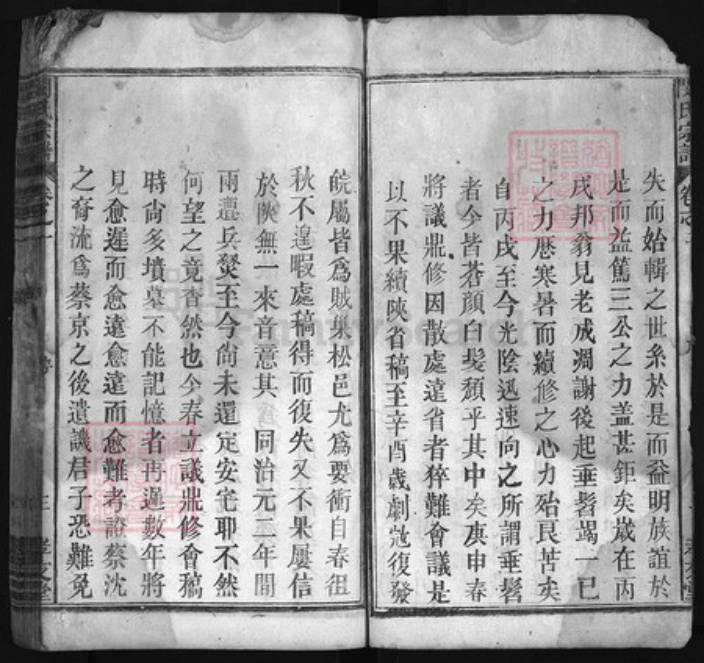 失而始輯之世系於是而益明族誼於
是而益篤三公之力蓋甚鉅矣歲在丙
戌邦翁見老成凋謝後起垂髫竭一己
之力歷寒暑而續修之心力殆艮苦矣
自丙戌至今光陰迅速向之所謂垂髫
者今皆蒼顏白髮頹乎其中矣庚申春
將議鼎修因散處遠省者猝難會議是
以不果續陝省稿至辛酉歲劇寇復發
皖屬皆爲賊巢松邑尤爲要衝自春徂
秋不遑暇處稿得而復失又不果屢信
於陝無一來音意其 同治元二年間
兩遭兵燹至今尙未還定安宅耶不然
何望之竟杳然也今春立議鼎修會稿
時尙多墳墓不能記憶者再遲數年將
見愈遲而愈遠愈遠而愈難考證蔡沈
之裔沈爲蔡京之後遺譏君子恐難免